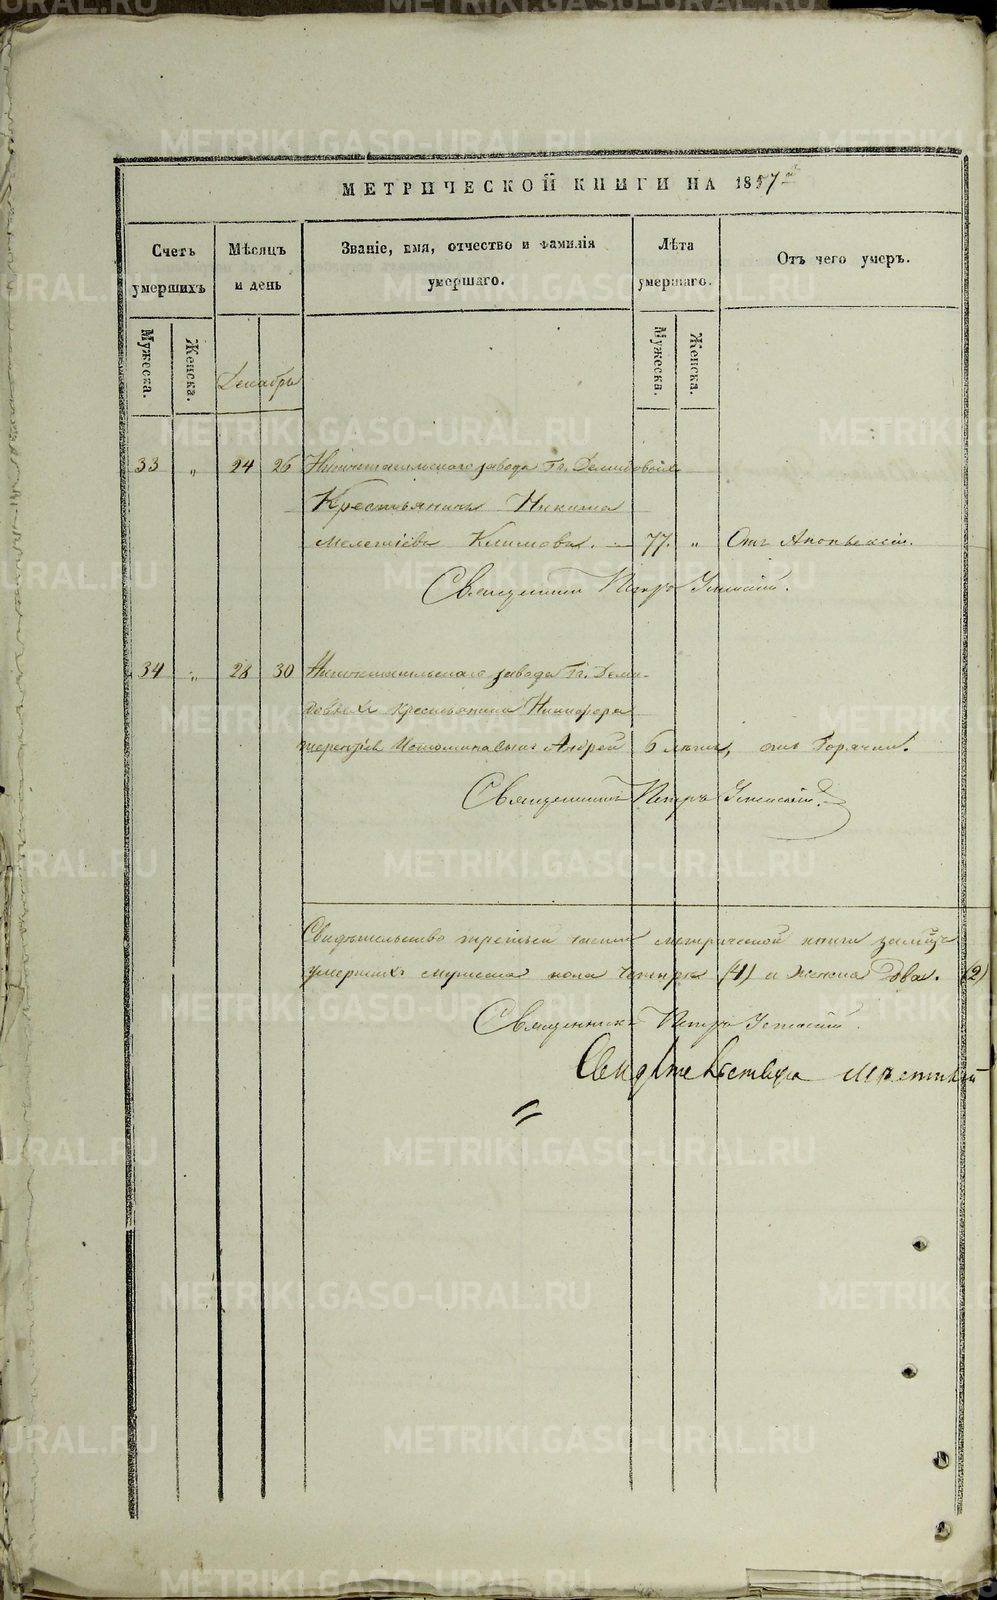 МЕТРИЧЕСКОЙ КНИГИ НА 1857
Счетъ умершихъ
Мѣсяцъ и день
Званіе, имя, отчество и фамилія умершаго.
Лѣта умершаго.
Отъ чего умеръ.
Мужеска.
Женска.
Декабрь
Мужеска.
Женска.
33 „ 24 26 Нижнетагильскаго завода Гг. Демидовыхъ
Крестьянинъ Никита
Мелетіевъ Климовъ. 77. „ Отъ Апоплексіи.
Священникъ Петръ
34 „ 28 30 Нижнетагильскаго завода Гг. Деми-
довыхъ крестьянина Никифора
сынъ Андрей 6 лѣтъ, отъ Горячки.
Священникъ Петръ
Свидѣтельство третьей части метрической книги
умершихъ мужеска пола четыре (4) и женска два. (2)
Священникъ Петръ
METRIKI.GASO-URAL.RU